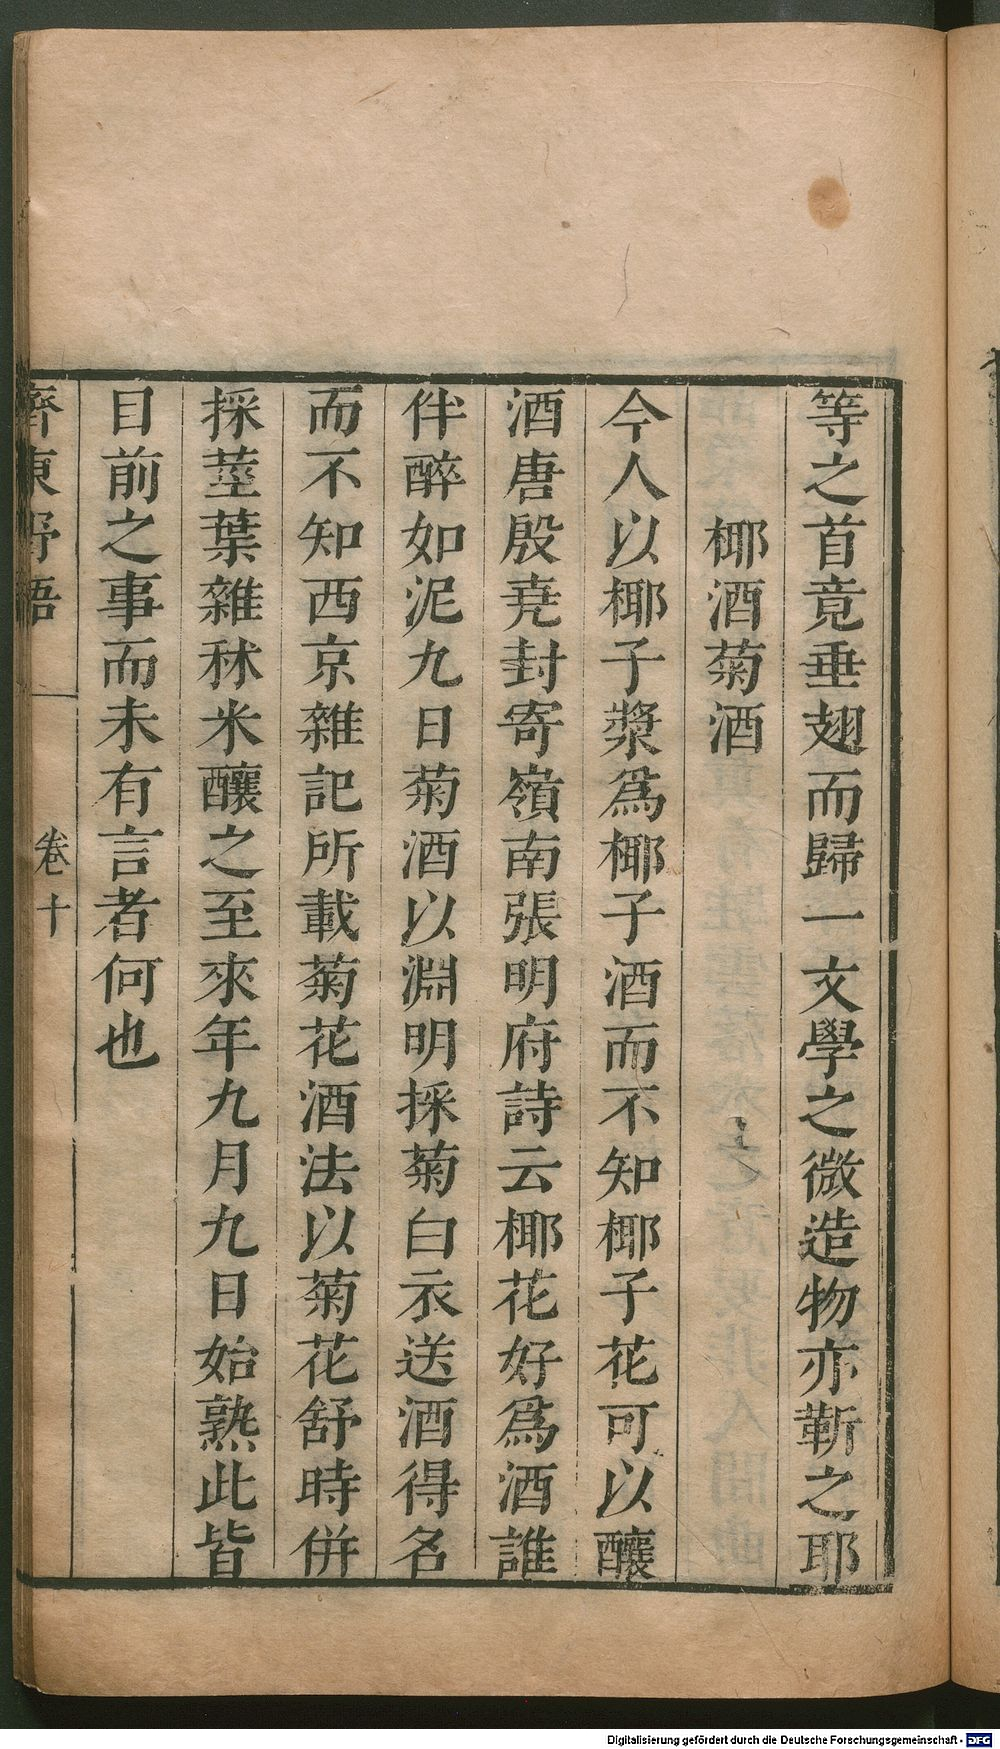 等之首竟垂翅而歸一文學之微造物亦靳之耶
椰酒菊酒
今人以椰子漿爲椰子酒而不知椰子花可以釀
酒唐殷堯封寄嶺南張明府詩云椰花好爲酒誰
伴醉如泥九日菊酒以淵明採菊白衣送酒得名
而不知西京雜記所載菊花酒法以菊花舒時併
採莖葉雜秫米釀之至來年九月九日始熟此皆
目前之事而未有言者何也
齊東野語
卷十
Digitalisierung gefördert durch die Deutsche Forschungsgemeinschaft - DFG